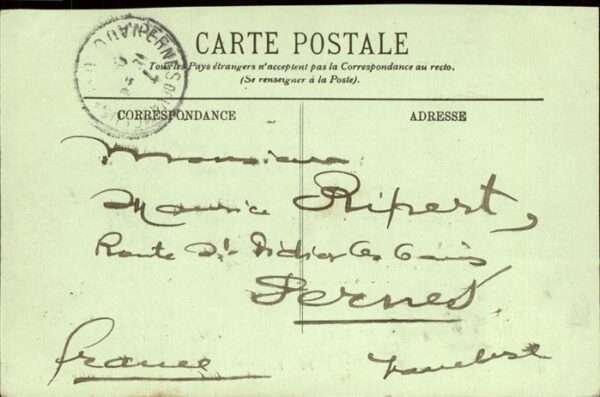 CARTE POSTALE
Tous les Pays étrangers n'acceptent pas la Correspondance au recto.
(Se renseigner à la Poste).
CORRESPONDANCE
ADRESSE
Monsieur
Maurice Ripert,
Route St Didier les Bains
Pernes
France
Vaucluse